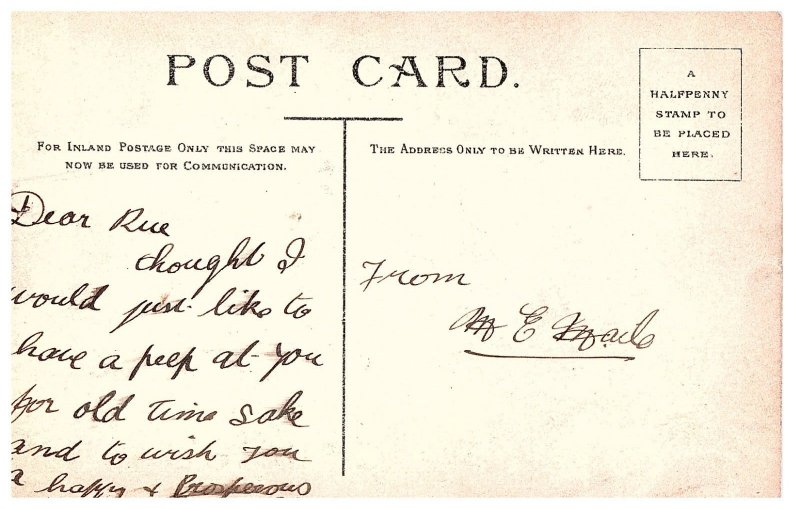 POST CARD.
A
HALFPENNY
STAMP TO
BE PLACED
HERE.
FOR INLAND POSTAGE ONLY THIS SPACE MAY
NOW BE USED FOR COMMUNICATION.
THE ADDRESS ONLY TO BE WRITTEN HERE.
Dear Rue
thought I
would just like to
have a peep at you
for old time sake
and to wish you
a happy & Prosperous
From
M E